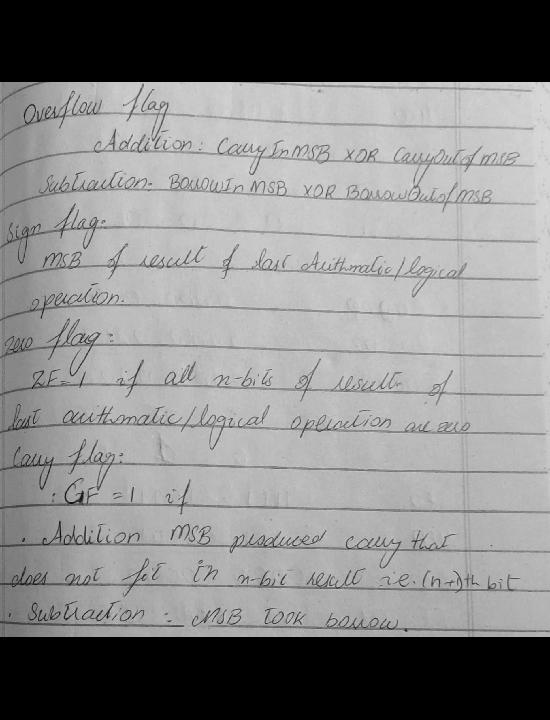 Overflow flag
Addition: CarryInMSB XOR CarryOutof MSB
Subtraction: BorrowIn MSB XOR BorrowOutof MSB
Sign flag:
MSB of result of last Arithmatic/logical
operation.
Zero flag:
ZF=1 if all n-bits of result of
last arithmatic/logical operation are zero
Carry flag:
: CF = 1 if
. Addition MSB produced carry that
does not fit in n-bit result i.e. (n+1)th bit
. Subtraction : MSB took borrow.